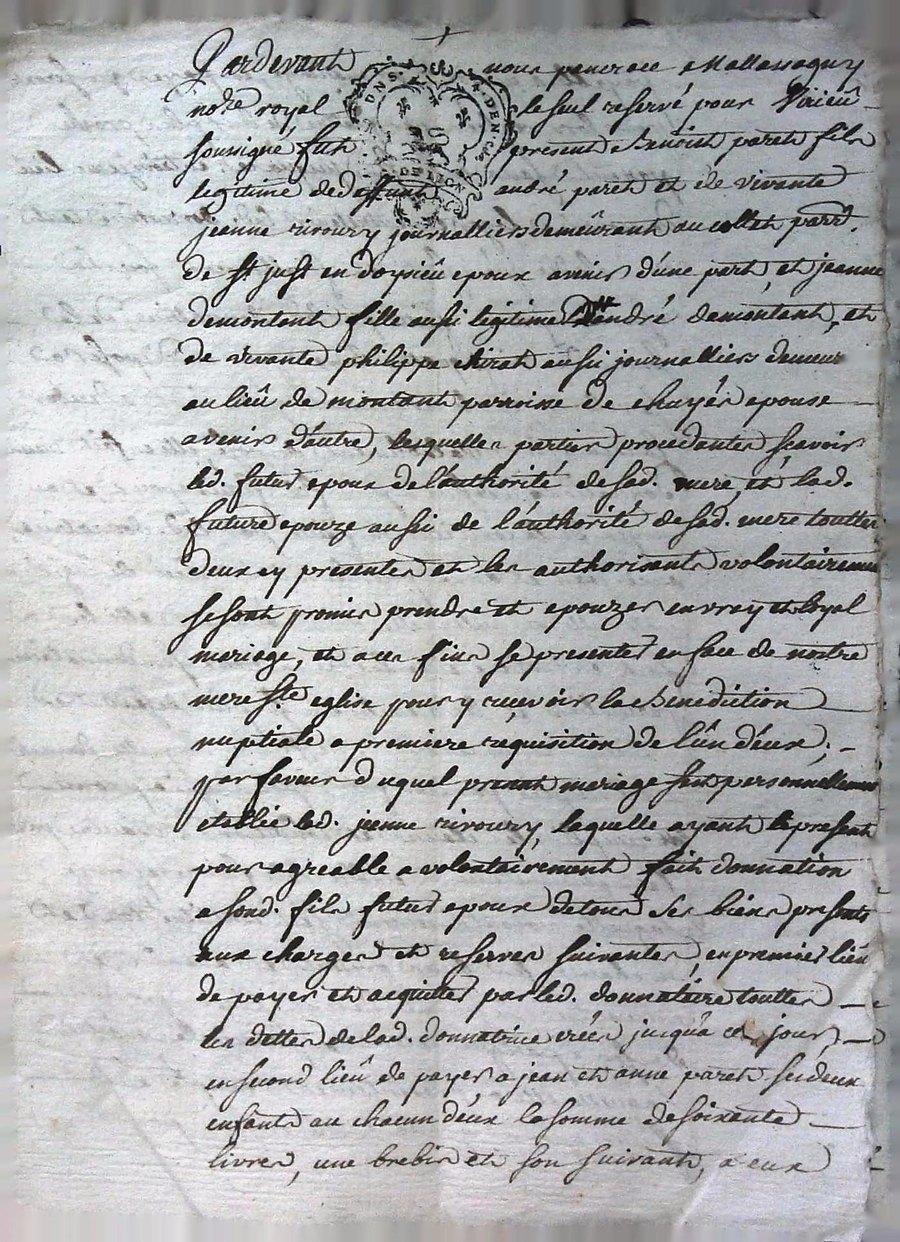 Pardevant nous pancrace Mallassagny
nore royal le seul reservé pour Virieû
soussigné fut present Benoist paret fils
legitime de deffunt andré paret et de vivante
jeanne rivoury journalliers demeurant au collet parr.
de st just en doysieû epoux avenir d'une part, et jeanne
demontant fille aussi legitime D'andré demontant, et
de vivante philippe mirat aussi journalliers demeur
au lieû de montant parroisse de chuyés epouse
avenir d'autre, lesquelles parties procedantes scavoir
led. futur epoux de l'authorité de sad. mere, et lad.
future epouze aussi de l'authorité de sad. mere touttes
deux cy presentes et les authorisants volontairement
se sont promis prendre et epouzer en vray et loyal
mariage, et a ces fins se presenter en face de nostre
mere ste eglise pour y recevoir la benediction
nuptiale a premiere requisition de l'ûn d'eux,
par faveur duquel present mariage s'est personnellement
etablie lad. jeanne rivoury, laquelle ayant le present
pour agreable a volontairement fait donnation
a sond. fils futur epoux de tous ses biens presents
aux charges et reserves suivantes, en premier lieû
de payer et acquitter par led. donnataire touttes
les dettes de lad. donnatrice créés jusqu'a ce jour,
en second lieû de payer a jean et anne paret ses deux
enfants au chacun d'eux la somme de soixante
livres, une brebis et son suivant, a eux